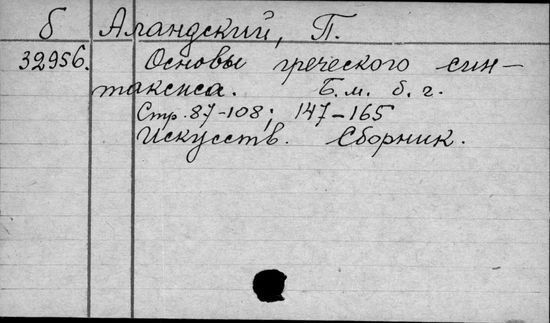 б Аландский, П.
32956. Основы греческого син-
таксиса. Б.м. б.г.
Стр. 87-108; 147-165
Искусств. Сборник.